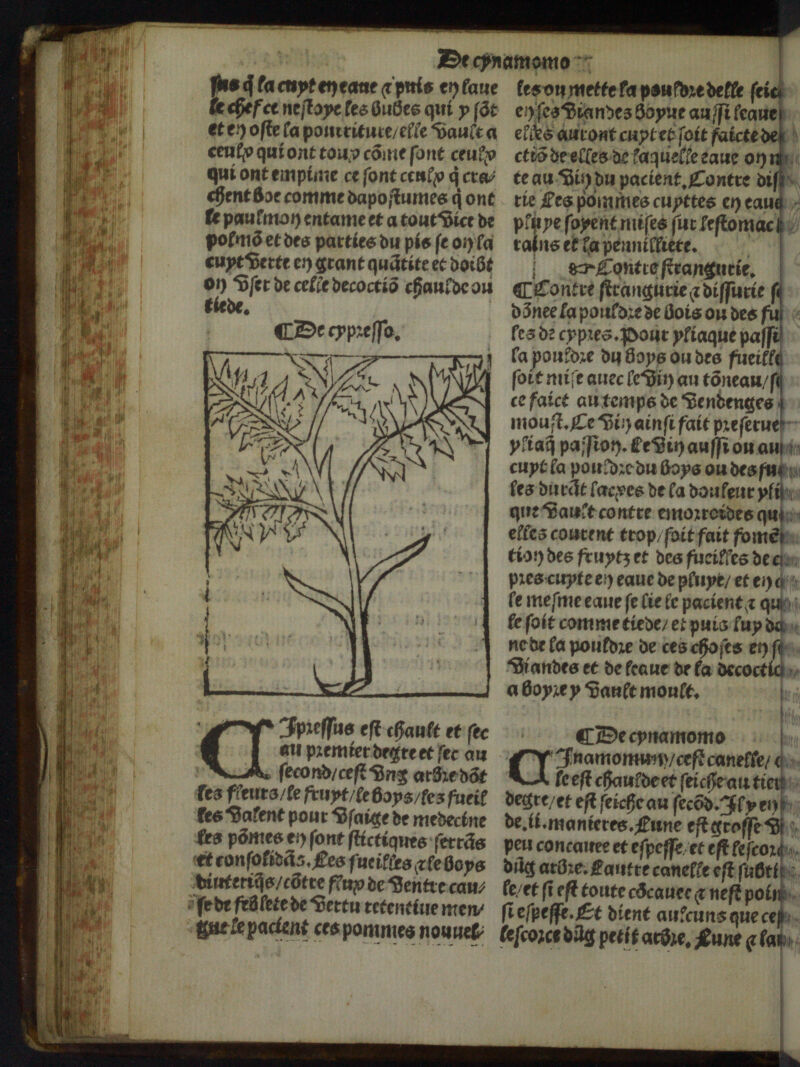 De cynamomo
sus q̃ la cuyt en eaue ⁊ puis en laue
le chef et nestoye les bubes qui y sõt
et en oste la pourriture/elle vault a
ceulx qui ont toux cõme sont ceulx
qui ont empime ce sont ceulx q̃ cra⸗
chent boe comme dapostumes q̃ ont
le paulmon entame et a tout vice de
polmõ et des parties du pis se on la
cuyt verte en grant quãtite et doibt
on vser de celle decoctiõ chaulde ou
tiede.
¶De cypresso.
CIpressus est chault et sec
au premier degre et sec au
second/cest vng arbre dõt
les fleurs/le fruyt/le boys/les fueil
les valent pour vsaige de medecine
les põmes en sont stictiques serrãs
et consolidãs. Les fueilles ⁊ le boys
diuteriq̃s/cõtre flux de ventre cau⸗
se de feblete de vertu retentiue men⸗
gue le pacient ces pommes nouuel⸗
les ou mette la pouldre delle seic
en ses viandes boyue aussi leaue
elles auront cuyt et soit faicte de
ctiõ de elles de laquelle eaue on
te au vin du pacient. Contre dis
rie Les pommes cuyttes en eaue
pluye soyent mises sur lestomac
rains et la pennilliere.
Contre strangurie.
¶Contre strangurie ⁊ dissurie
dõnee la pouldre de bois ou des fu
les de cypres. Pour yliaque passi
la pouldre du boys ou des fueille
soit mise auec le vin au tõneau/
ce faict au temps de vendenges
moust. Le vin ainsi fait preserue
yliaq̃ passion. Le vin aussi ou au
cuyt la pouldre du boys ou des fu
les durãt lacxes de la douleur yli
que vault contre emorroides qu
elles courent trop/soit fait fomẽ
tion des fruytz et des fueilles de c
pres cuyte en eaue de pluye/ et en
le mesme eaue se lie le pacient ⁊ qu
le soit comme tiede/ et puis luy dõ
ne de la pouldre de ces choses en
viandes et de leaue de la decoctio
a boyre y vault moult.
¶De cynamomo
CInamomum/cest canelle/
le est chaulde et seiche au tier
degre/et est seiche au secõd. Il y en
de.ii.manieres. Lune est grosse
peu concauee et espesse/et est lescor
dũg arbre. Lautre canelle est subti
le/et si est toute cõcauee ⁊ nest poin
si espesse. Et dient aulcuns que cest
lescorce dũg petit arbre. Lune ⁊ lau